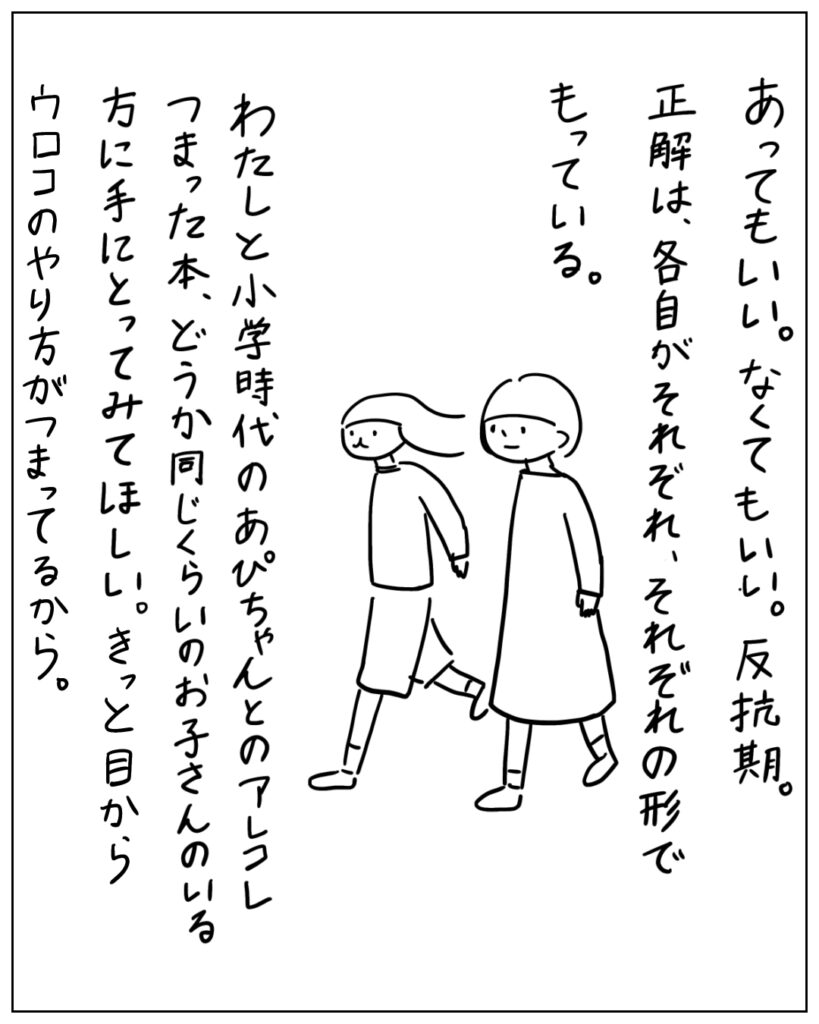 あってもいい。なくてもいい。反抗期。
正解は、各自がそれぞれ、それぞれの形で
もっている。
わたしと小学時代のあぴちゃんとのアレコレ
つまった本、どうか同じくらいのお子さんのいる
方に手にとってみてほしい。きっと目から
ウロコのやり方がつまってるから。